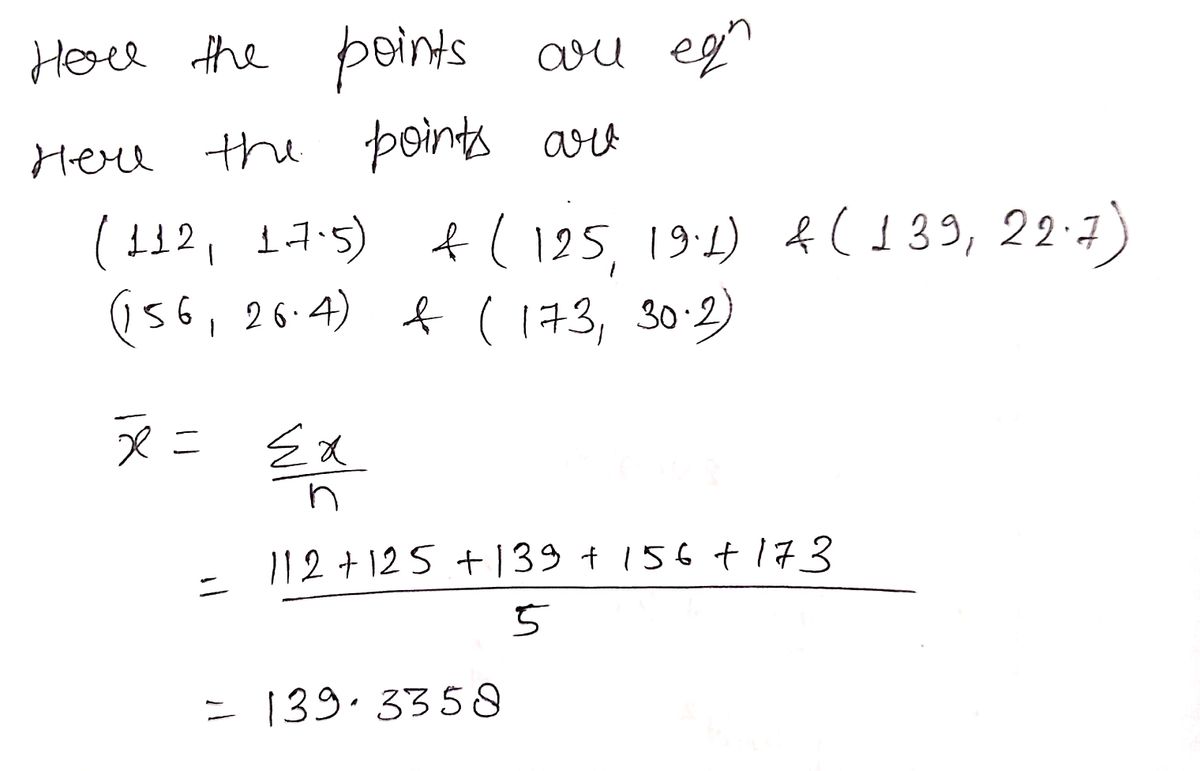 Here the points are eqⁿ
Here the points are
(112, 17.5) & (125, 19.1) & (139, 22.7)
(156, 26.4) & (173, 30.2)
x̄ = Σx
n
= 112 + 125 + 139 + 156 + 173
5
= 139.3358